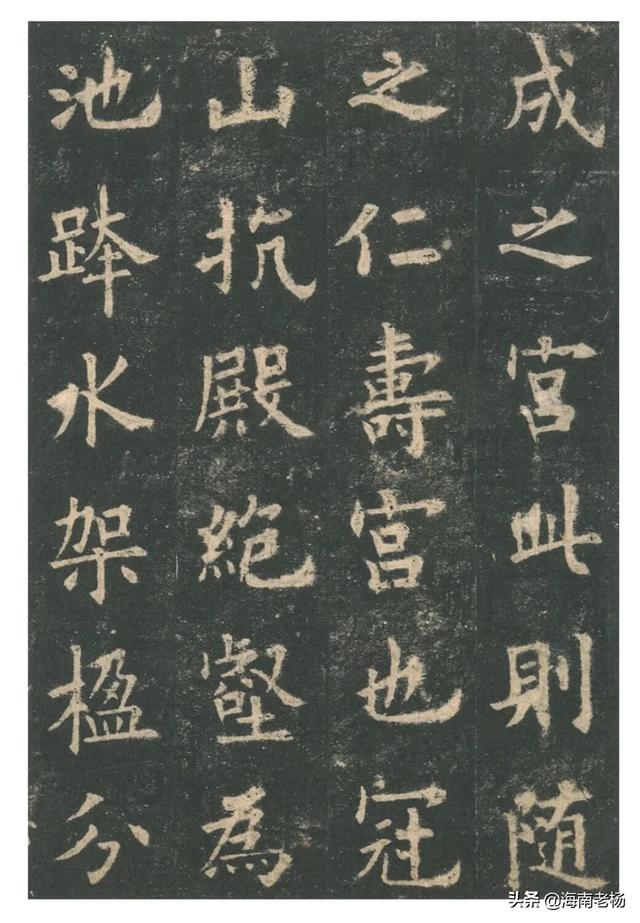 成之宮此則随
之仁壽宮也冠
山抗殿絶壑為
池跨水架楹分
头条 @海南老杨